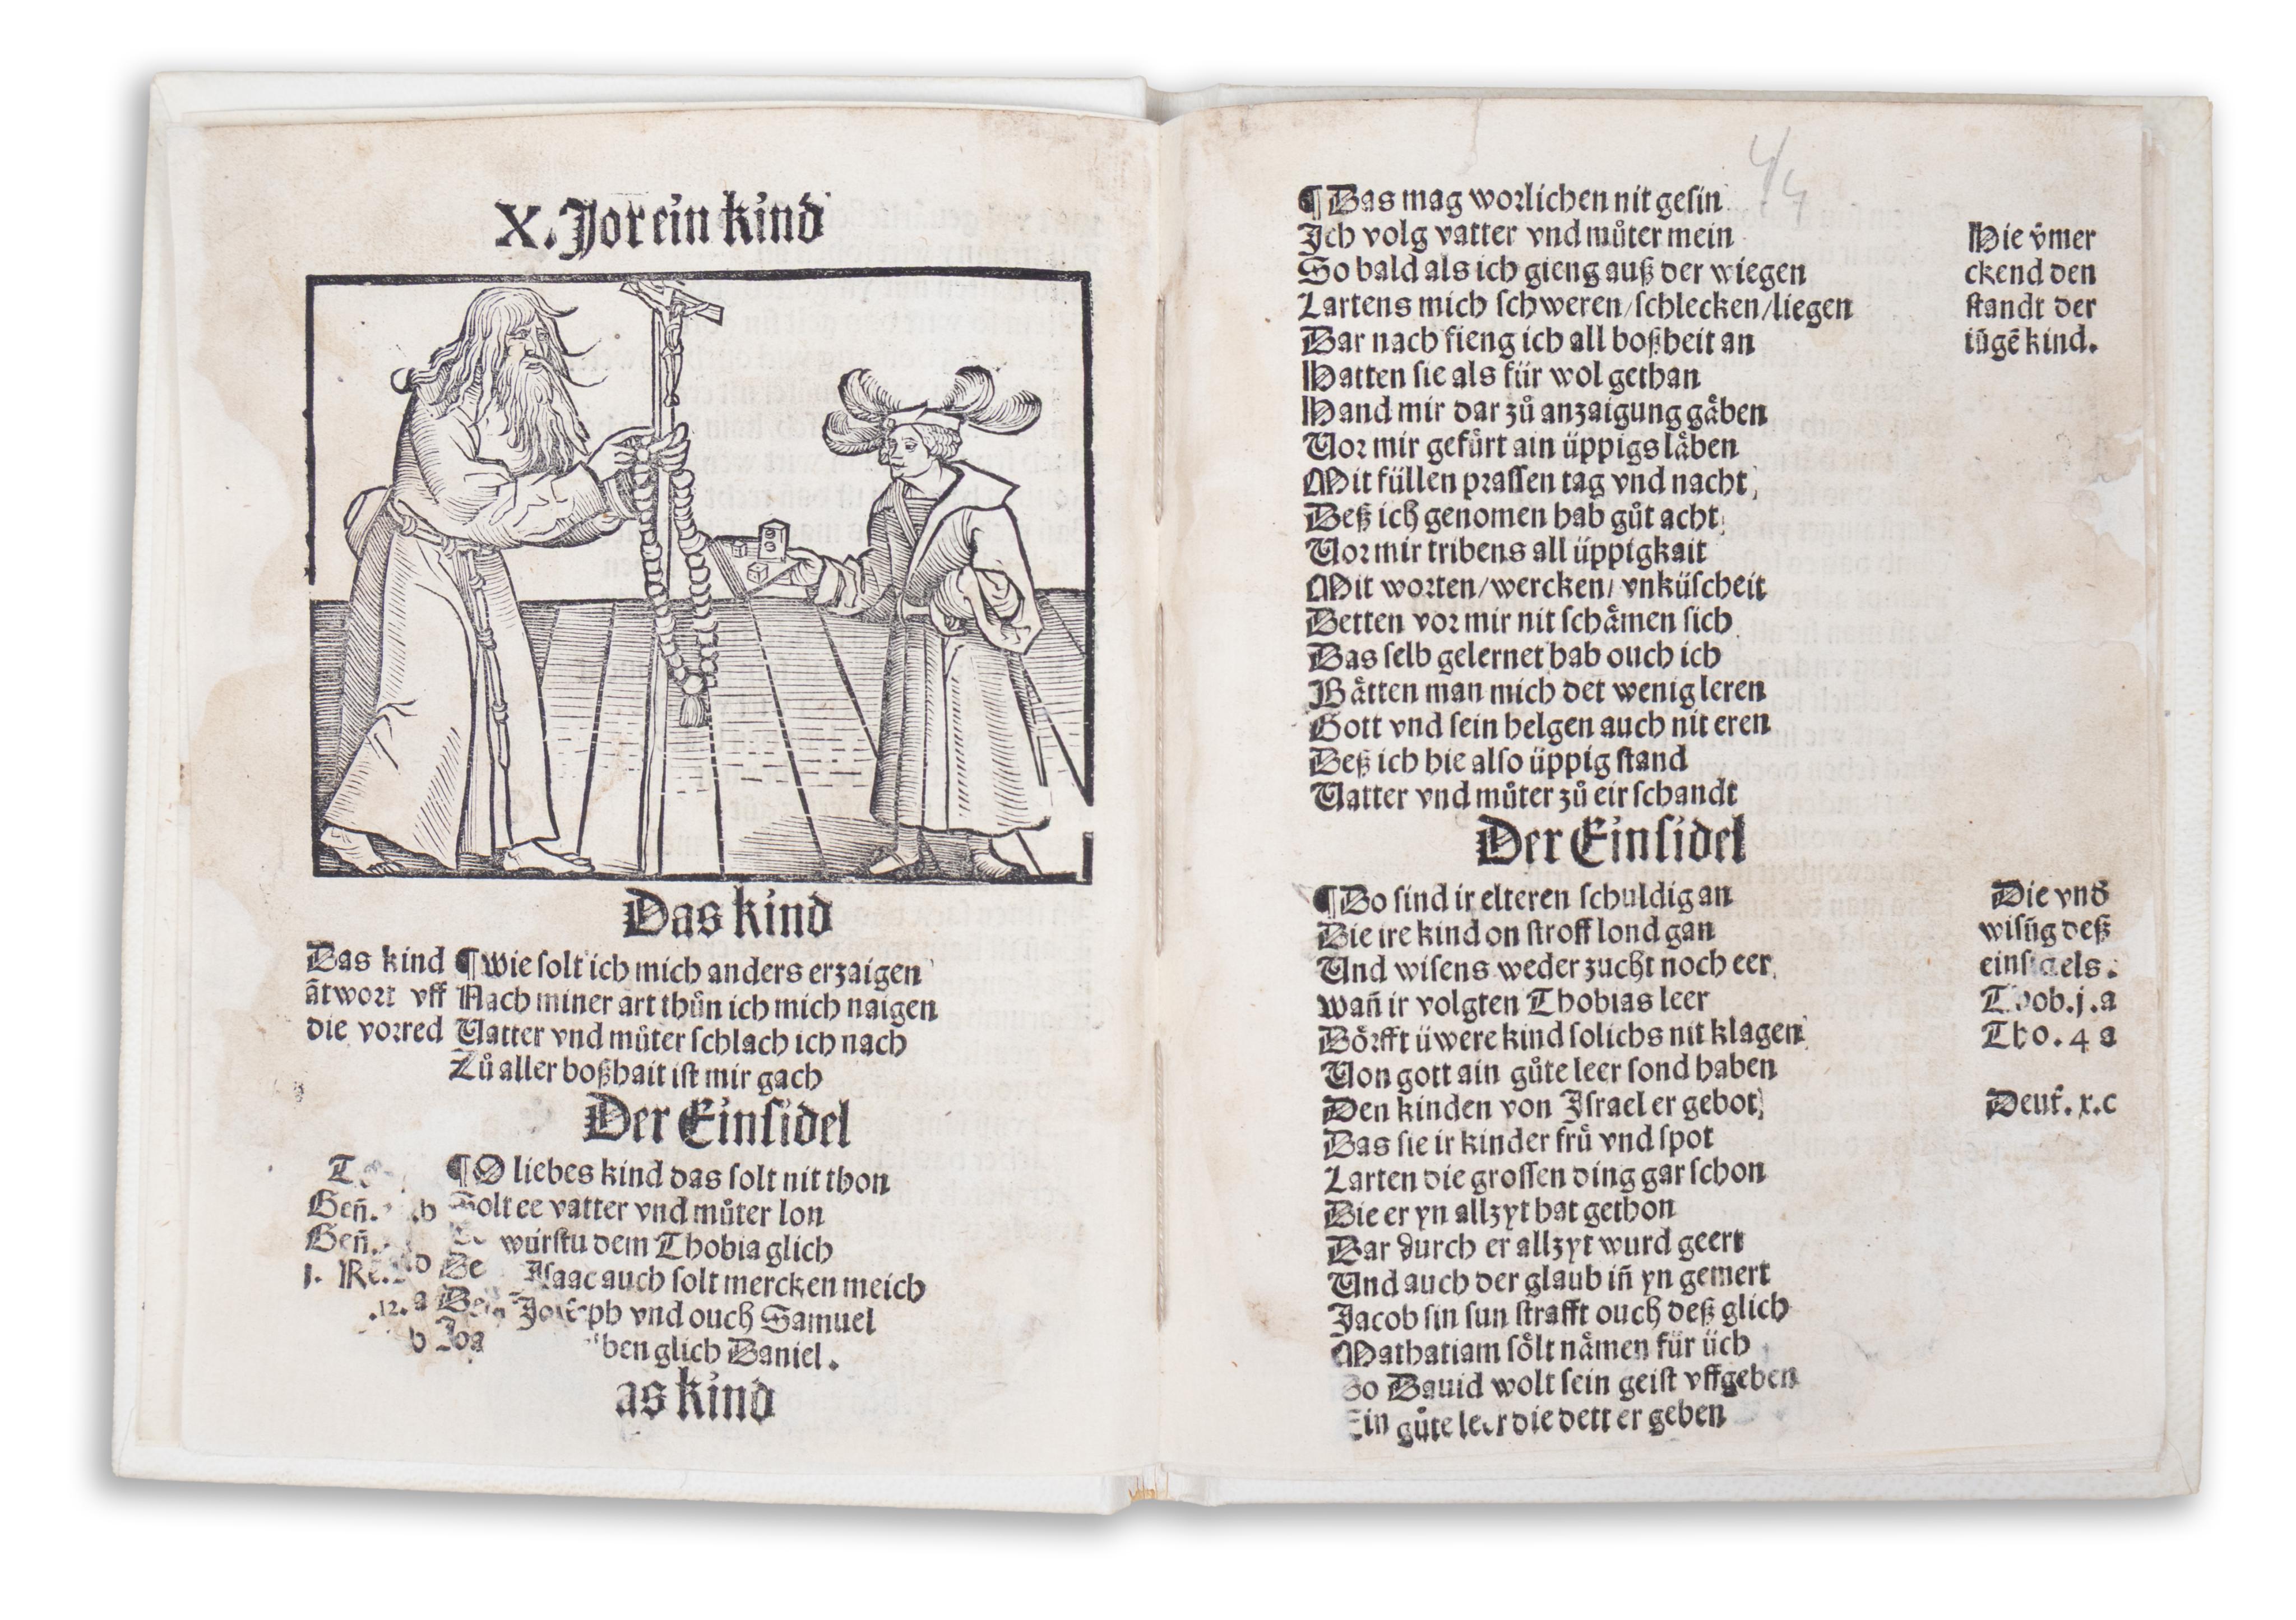 X. Jor ein kind
Das kind
Das kind ¶ Wie solt ich mich anders erzaigen
ãtwort vff Nach miner art thůn ich mich naigen
die vorred Vatter vnd můter schlach ich nach
Zů aller boßhait ist mir gach
Der Einsidel
¶ O liebes kind das solt nit thon
Geñ. b Solt ee vatter vnd můter lon
Geñ. würstu dem Thobia glich
j. Isaac auch solt mercken meich
12. a Joseph vnd ouch Samuel
b glich Daniel.
as kind
4/4
¶ Das mag worlichen nit gesin
Ich volg vatter vnd můter mein
So bald als ich gieng auß der wiegen
Lartens mich schweren/schlecken/liegen
Dar nach fieng ich all boßheit an
Hatten sie als für wol gethan
Hand mir dar zů anzaigung gåben
Vor mir gefůrt ain üppigs låben
Mit füllen prassen tag vnd nacht
Deß ich genomen hab gůt acht
Vor mir tribens all üppigkait
Mit worten/wercken/vnküscheit
Detten vor mir nit schåmen sich
Das selb gelernet hab ouch ich
Båtten man mich det wenig leren
Gott vnd sein helgen auch nit eren
Deß ich hie also üppig stand
Vatter vnd můter zů eir schandt
Hie v̂mer
ckend den
standt der
iũgẽ kind.
Der Einsidel
¶ Do sind ir elteren schuldig an
Die ire kind on stroff lond gan
Vnd wisens weder zucht noch eer
Wañ ir volgten Thobias leer
Dörfft üwere kind solichs nit klagen
Von gott ain gůte leer sond haben
Den kinden von Israel er gebot
Das sie ir kinder frů vnd spot
Larten die grossen ding gar schon
Die er yn allzyt hat gethon
Dar durch er allzyt wurd geert
Vnd auch der glaub iñ yn gemert
Jacob sin sun strafft ouch deß glich
Mathatiam sölt nåmen für üch
So Dauid wolt sein geist vffgeben
Ein gůte leer die dett er geben
Die vnd
wisũg deß
einsidels.
Thob. j. a
Tho. 4 a
Deut. x. c